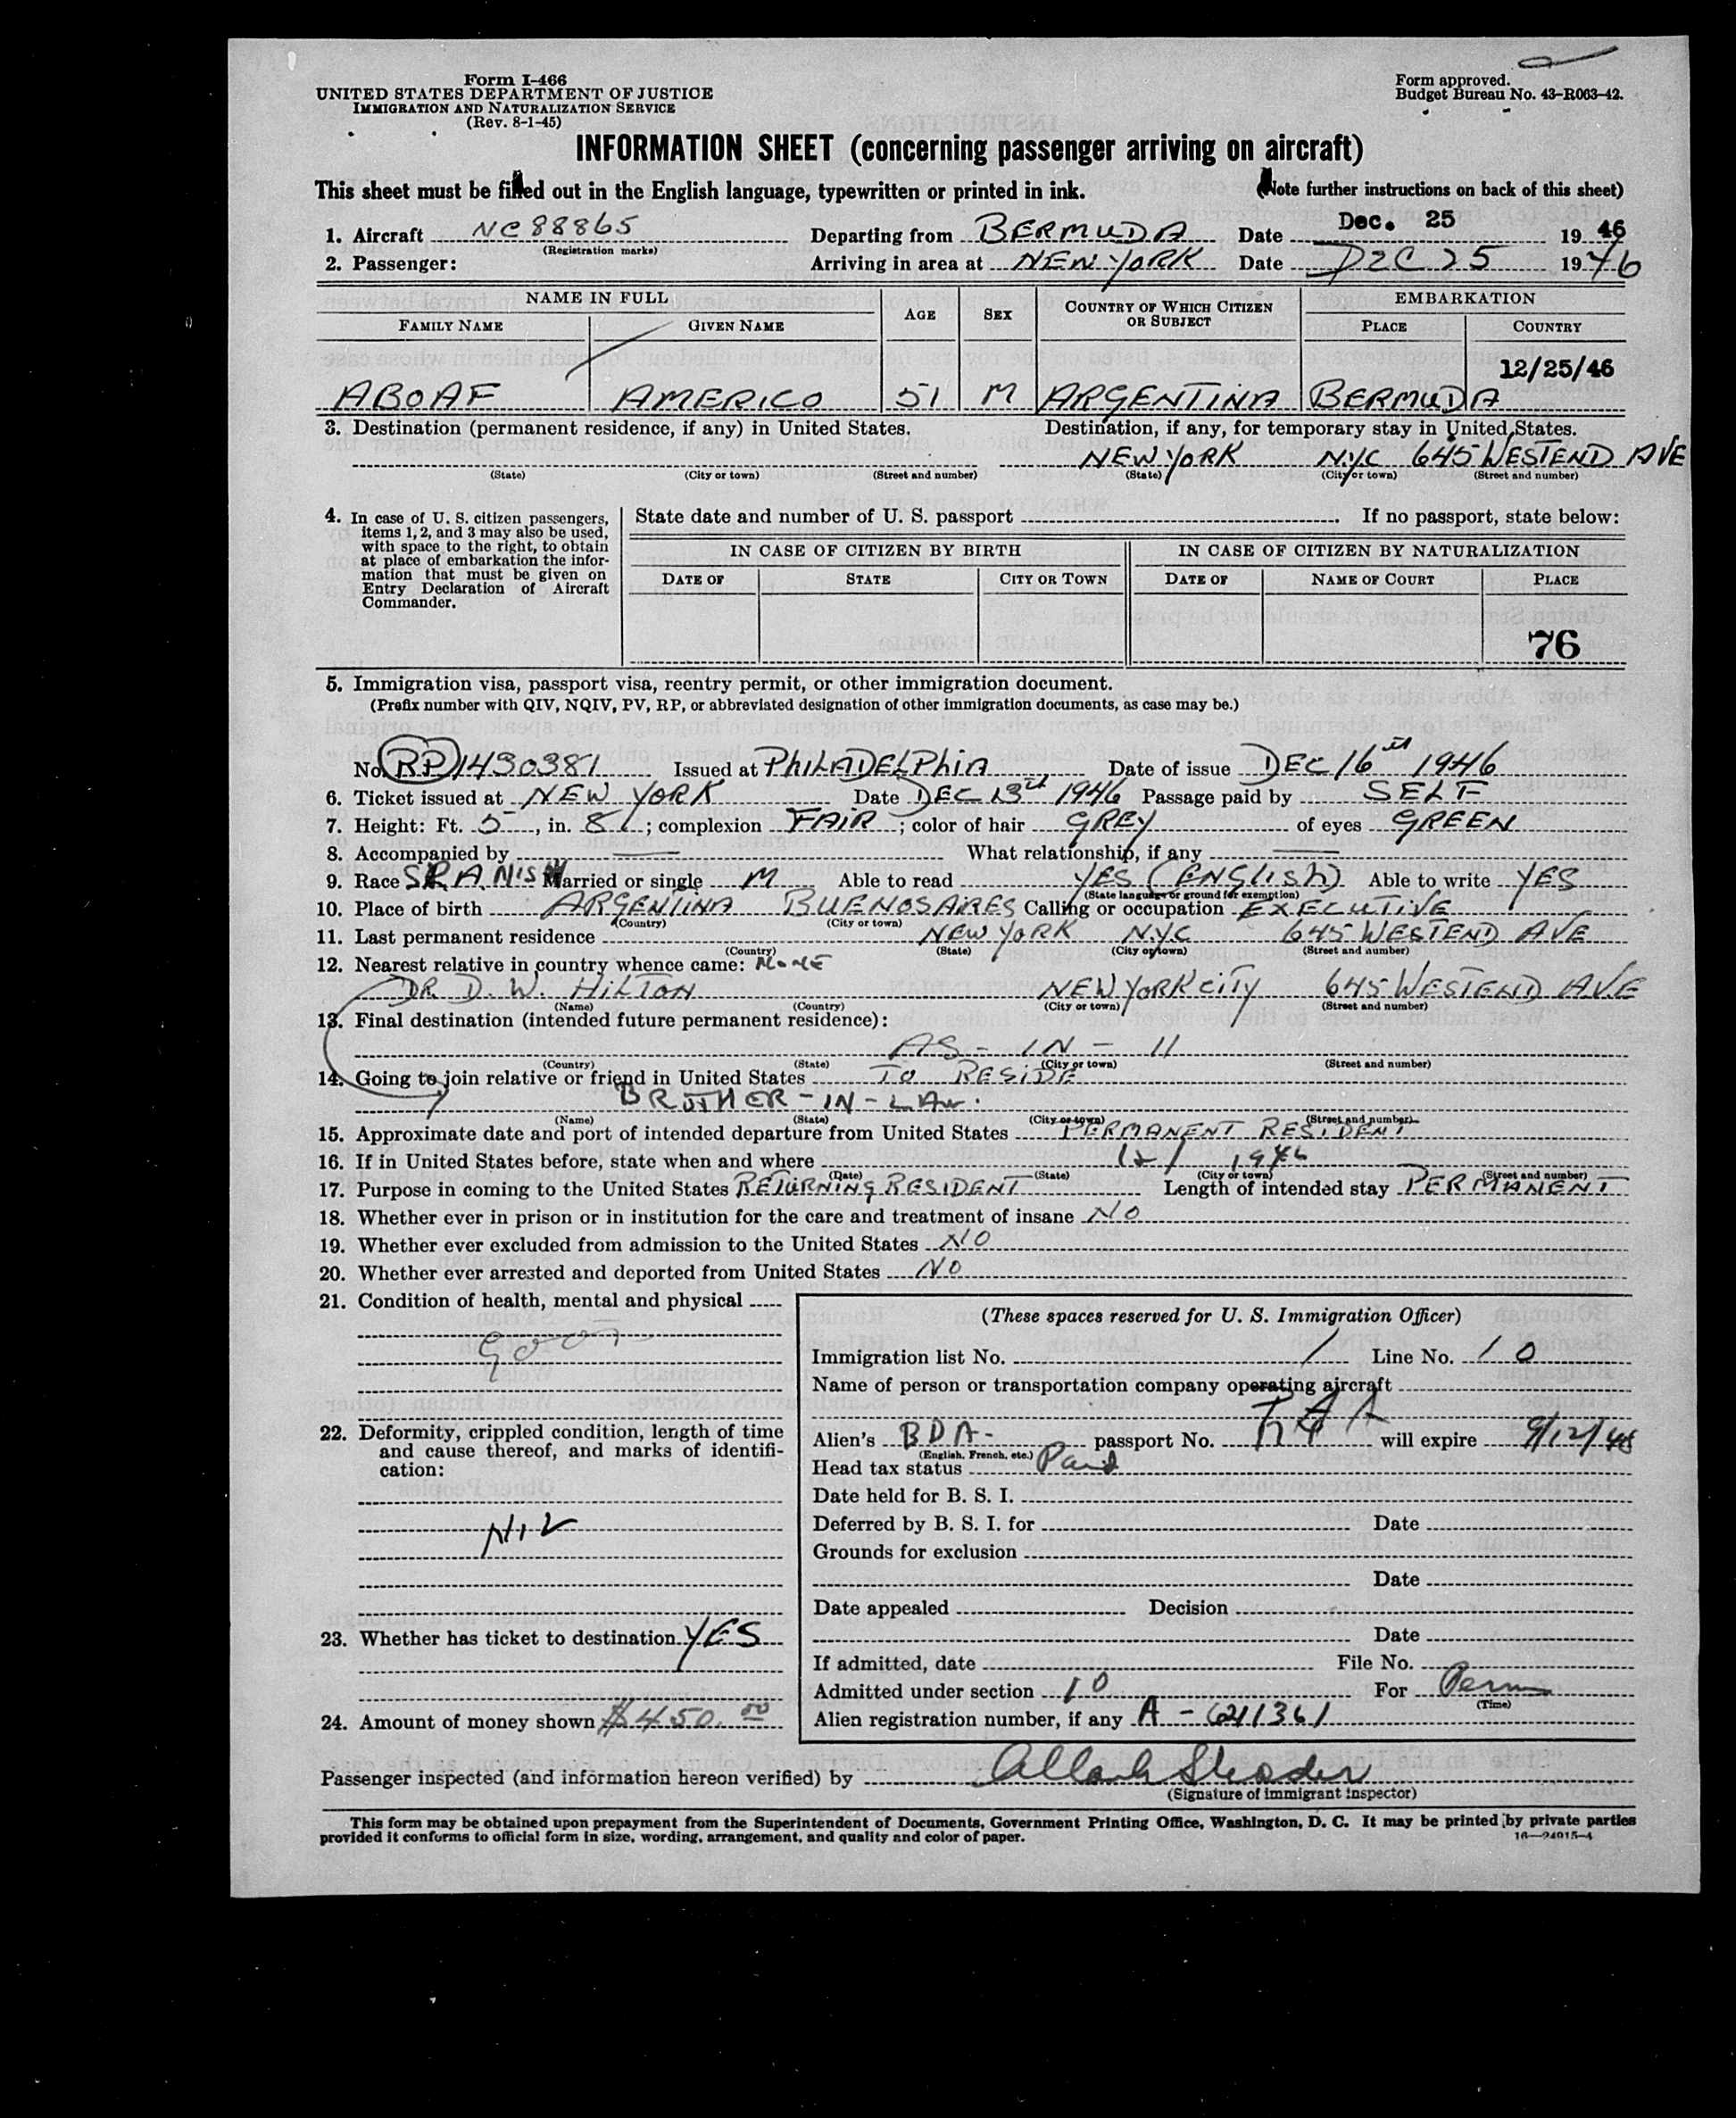 Form I-466
UNITED STATES DEPARTMENT OF JUSTICE
IMMIGRATION AND NATURALIZATION SERVICE
(Rev. 8-1-45)
Form approved.
Budget Bureau No. 43-R063-42.
INFORMATION SHEET (concerning passenger arriving on aircraft)
This sheet must be filled out in the English language, typewritten or printed in ink. (Note further instructions on back of this sheet)
1. Aircraft NC88865 Departing from BERMUDA Date Dec. 25 1946
(Registration marks)
2. Passenger: Arriving in area at NEW YORK Date DEC 25 1946
NAME IN FULL AGE SEX COUNTRY OF WHICH CITIZEN OR SUBJECT EMBARKATION
FAMILY NAME GIVEN NAME PLACE COUNTRY
12/25/46
ABOAF AMERICO 51 M ARGENTINA BERMUDA
3. Destination (permanent residence, if any) in United States. Destination, if any, for temporary stay in United States.
NEW YORK N.Y.C 645 WESTEND AVE
(State) (City or town) (Street and number) (State) (City or town) (Street and number)
4. In case of U. S. citizen passengers, items 1, 2, and 3 may also be used, with space to the right, to obtain at place of embarkation the information that must be given on Entry Declaration of Aircraft Commander.
State date and number of U. S. passport If no passport, state below:
IN CASE OF CITIZEN BY BIRTH IN CASE OF CITIZEN BY NATURALIZATION
DATE OF STATE CITY OR TOWN DATE OF NAME OF COURT PLACE
76
5. Immigration visa, passport visa, reentry permit, or other immigration document.
(Prefix number with QIV, NQIV, PV, RP, or abbreviated designation of other immigration documents, as case may be.)
No. RP 1430381 Issued at PHILADELPHIA Date of issue DEC 16th 1946
6. Ticket issued at NEW YORK Date DEC 13th 1946 Passage paid by SELF
7. Height: Ft. 5, in. 8; complexion FAIR; color of hair GREY of eyes GREEN
8. Accompanied by — What relationship, if any —
9. Race SPANISH Married or single M Able to read YES (ENGLISH) Able to write YES
(State language or ground for exemption)
10. Place of birth ARGENTINA BUENOS AIRES Calling or occupation EXECUTIVE
(Country) (City or town)
11. Last permanent residence NEW YORK N.Y.C 645 WESTEND AVE
(Country) (State) (City or town) (Street and number)
12. Nearest relative in country whence came: NONE
DR. D. W. HILTON NEW YORK CITY 645 WESTEND AVE
(Name) (Country) (City or town) (Street and number)
13. Final destination (intended future permanent residence):
AS - IN - 11
(Country) (State) (City or town) (Street and number)
14. Going to join relative or friend in United States TO RESIDE
BROTHER-IN-LAW.
(Name) (State) (City or town) (Street and number)
15. Approximate date and port of intended departure from United States PERMANENT RESIDENT
16. If in United States before, state when and where 1946
(Date) (State) (City or town) (Street and number)
17. Purpose in coming to the United States RETURNING RESIDENT Length of intended stay PERMANENT
18. Whether ever in prison or in institution for the care and treatment of insane NO
19. Whether ever excluded from admission to the United States NO
20. Whether ever arrested and deported from United States NO
21. Condition of health, mental and physical
good
22. Deformity, crippled condition, length of time and cause thereof, and marks of identification:
NIL
23. Whether has ticket to destination YES
24. Amount of money shown $450.00
(These spaces reserved for U. S. Immigration Officer)
Immigration list No. 1 Line No. 10
Name of person or transportation company operating aircraft
PAA
Alien's BDA- passport No. will expire 9/12/48
(English, French, etc.)
Head tax status Paid
Date held for B. S. I.
Deferred by B. S. I. for Date
Grounds for exclusion
Date
Date appealed Decision
Date
If admitted, date File No.
Admitted under section 10 For Perm
(Time)
Alien registration number, if any A-
Passenger inspected (and information hereon verified) by
(Signature of immigrant inspector)
This form may be obtained upon prepayment from the Superintendent of Documents, Government Printing Office, Washington, D. C. It may be printed by private parties
provided it conforms to official form in size, wording, arrangement, and quality and color of paper.
16—24915-4